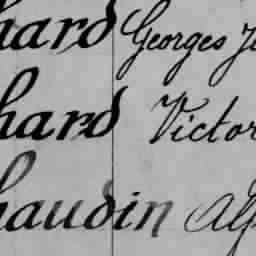 hard Georges J
hard Victor
haudin Alp